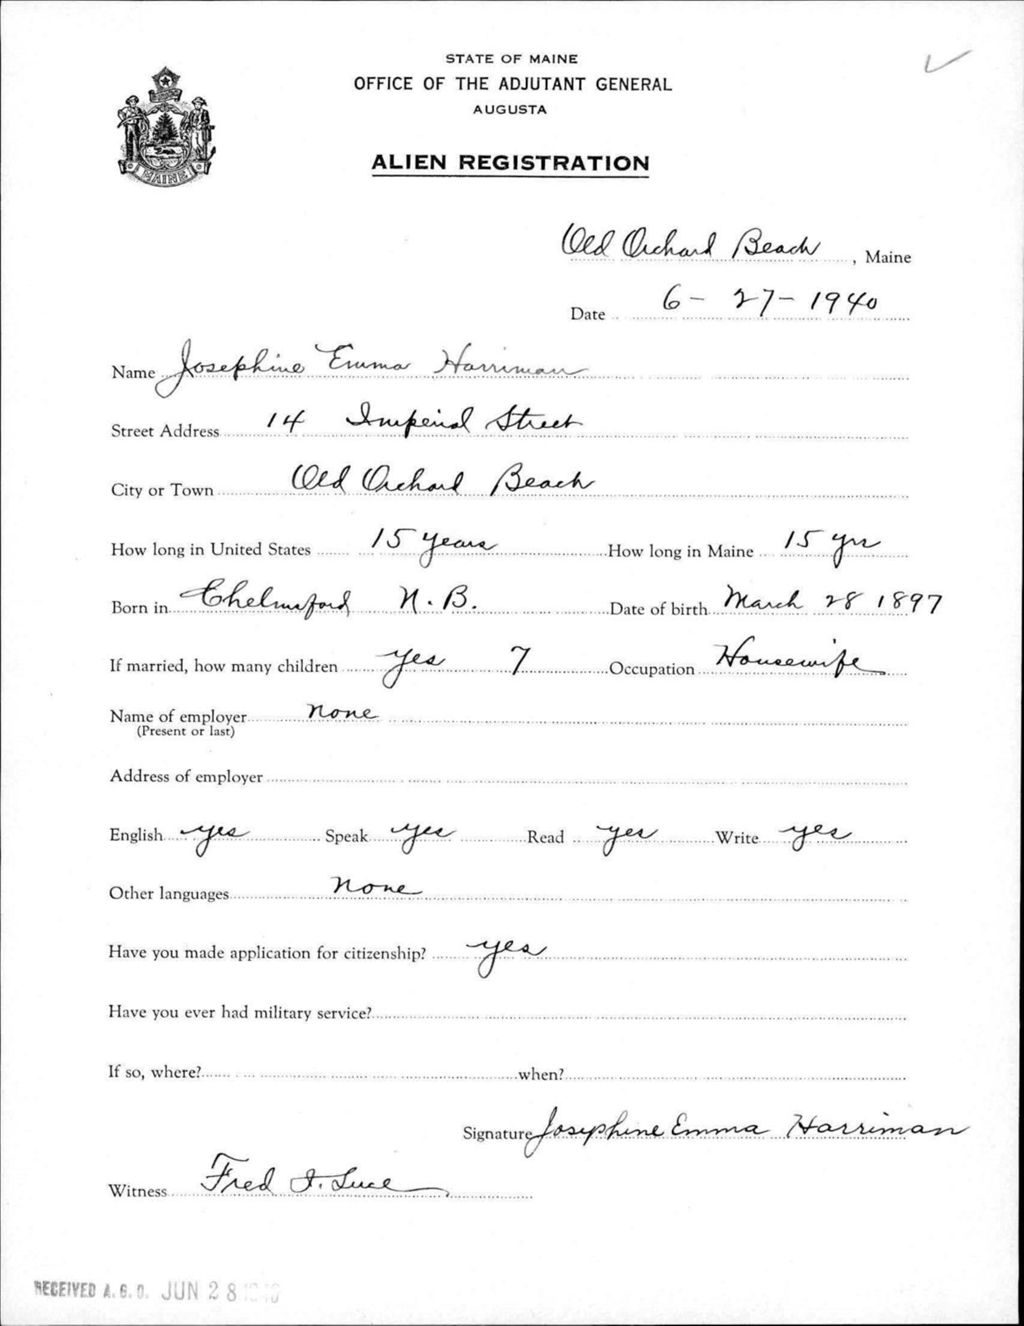 STATE OF MAINE
OFFICE OF THE ADJUTANT GENERAL
AUGUSTA
ALIEN REGISTRATION
MAINE
Old Orchard Beach, Maine
Date 6-27-1940
Name Josephine Emma Harriman
Street Address 14 Imperial Street
City or Town Old Orchard Beach
How long in United States 15 years How long in Maine 15 yrs
Born in Chelmsford N.B. Date of birth March 28 1897
If married, how many children yes 7 Occupation Housewife
Name of employer none
(Present or last)
Address of employer
English yes Speak yes Read yes Write yes
Other languages none
Have you made application for citizenship? yes
Have you ever had military service?
If so, where? when?
Signature Josephine Emma Harriman
Witness Fred I. Luce
RECEIVED A.G.O. JUN 28 1940